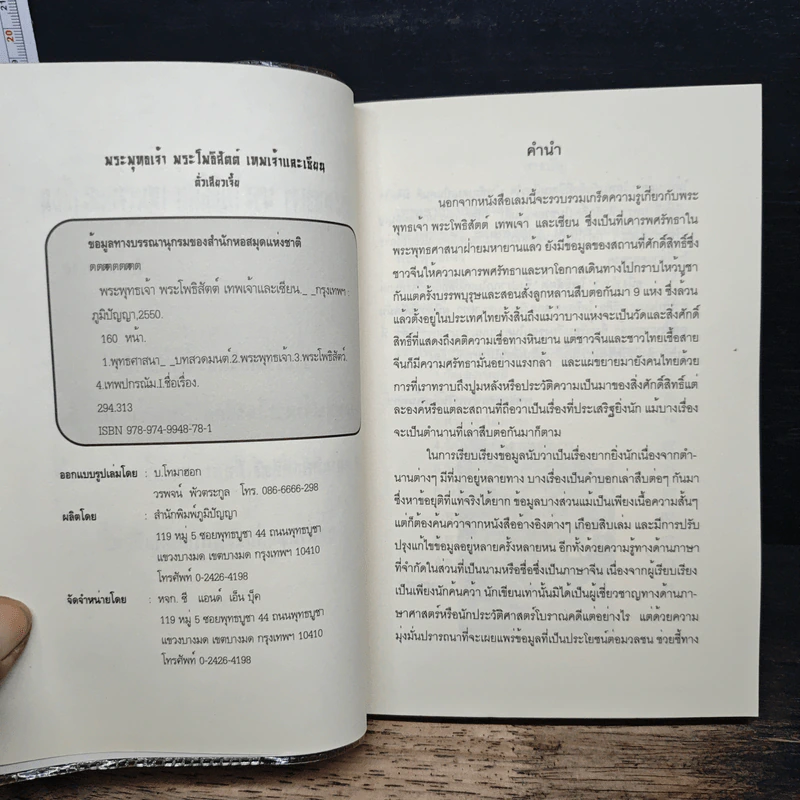 พระพุทธเจ้า พระโพธิสัตต์ เทพเจ้าและเซียน
ตั่วเสียวเจี้ย
ข้อมูลทางบรรณานุกรมของสำนักหอสมุดแห่งชาติ
พระพุทธเจ้า พระโพธิสัตต์ เทพเจ้าและเซียน._ _กรุงเทพฯ :
ภูมิปัญญา,2550.
160 หน้า.
1.พุทธศาสนา_ _บทสวดมนต์.2.พระพุทธเจ้า.3.พระโพธิสัตว์.
4.เทพปกรณัม.I.ชื่อเรื่อง.
294.313
ISBN 978-974-9948-78-1
ออกแบบรูปเล่มโดย : บ.โทมาฮอก
วรพจน์ พัวตระกูล โทร. 086-6666-298
ผลิตโดย : สำนักพิมพ์ภูมิปัญญา
119 หมู่ 5 ซอยพุทธบูชา 44 ถนนพุทธบูชา
แขวงบางมด เขตบางมด กรุงเทพฯ 10410
โทรศัพท์ 0-2426-4198
จัดจำหน่ายโดย : หจก. ซี แอนด์ เอ็น บุ๊ค
119 หมู่ 5 ซอยพุทธบูชา 44 ถนนพุทธบูชา
แขวงบางมด เขตบางมด กรุงเทพฯ 10410
โทรศัพท์ 0-2426-4198
คำนำ
นอกจากหนังสือเล่มนี้จะรวบรวมเกร็ดความรู้เกี่ยวกับพระ
พุทธเจ้า พระโพธิสัตว์ เทพเจ้า และเซียน ซึ่งเป็นที่เคารพศรัทธาใน
พระพุทธศาสนาฝ่ายมหายานแล้ว ยังมีข้อมูลของสถานที่ศักดิ์สิทธิ์ซึ่ง
ชาวจีนให้ความเคารพศรัทธาและหาโอกาสเดินทางไปกราบไหว้บูชา
กันแต่ครั้งบรรพบุรุษและสอนสั่งลูกหลานสืบต่อกันมา 9 แห่ง ซึ่งล้วน
แล้วตั้งอยู่ในประเทศไทยทั้งสิ้นถึงแม้ว่าบางแห่งจะเป็นวัดและสิ่งศักดิ์
สิทธิ์ที่แสดงถึงคติความเชื่อทางหินยาน แต่ชาวจีนและชาวไทยเชื้อสาย
จีนก็มีความศรัทธามั่นอย่างแรงกล้า และแผ่ขยายมายังคนไทยด้วย
การที่เราทราบถึงปูมหลังหรือประวัติความเป็นมาของสิ่งศักดิ์สิทธิ์แต่
ละองค์หรือแต่ละสถานที่ถือว่าเป็นเรื่องที่ประเสริฐยิ่งนัก แม้บางเรื่อง
จะเป็นตำนานที่เล่าสืบต่อกันมาก็ตาม
ในการเรียบเรียงข้อมูลนับว่าเป็นเรื่องยากยิ่งนักเนื่องจากตำ-
นานต่างๆ มีที่มาอยู่หลายทาง บางเรื่องเป็นคำบอกเล่าสืบต่อๆ กันมา
ซึ่งหาข้อยุติที่แท้จริงได้ยาก ข้อมูลบางส่วนแม้เป็นเพียงเนื้อความสั้นๆ
แต่ก็ต้องค้นคว้าจากหนังสืออ้างอิงต่างๆ เกือบสิบเล่ม และมีการปรับ
ปรุงแก้ไขข้อมูลอยู่หลายครั้งหลายหน อีกทั้งด้วยความรู้ทางด้านภาษา
ที่จำกัดในส่วนที่เป็นนามหรือชื่อซึ่งเป็นภาษาจีน เนื่องจากผู้เรียบเรียง
เป็นเพียงนักค้นคว้า นักเขียนเท่านั้นมิได้เป็นผู้เชี่ยวชาญทางด้านภา-
ษาศาสตร์หรือนักประวัติศาสตร์โบราณคดีแต่อย่างไร แต่ด้วยความ
มุ่งมั่นปรารถนาที่จะเผยแพร่ข้อมูลที่เป็นประโยชน์ต่อมวลชน ช่วยชี้ทาง